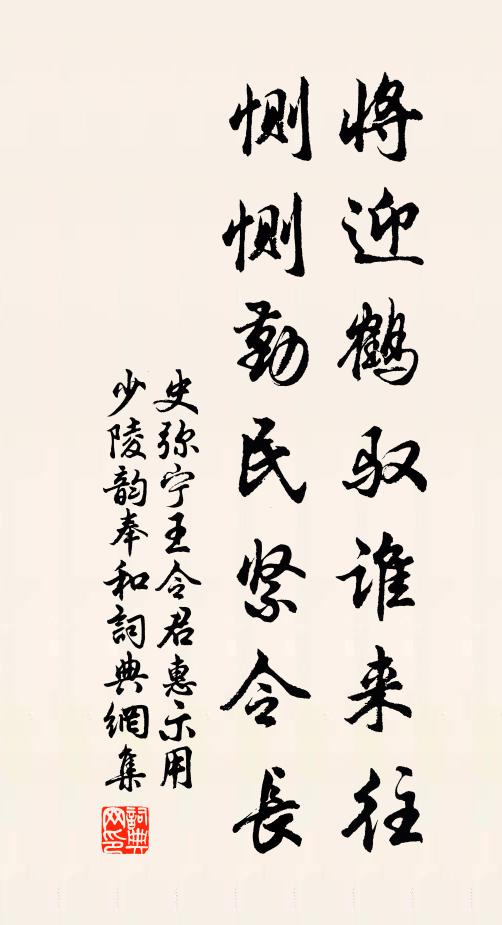 将迎鹤驭谁来往
恻恻勤民紧令长
史弥宁王令君惠示用
少陵韵奉和詞典網集
詞典
网印